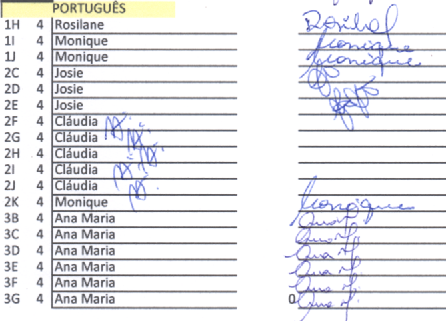 PORTUGUÊS
1H 4 Rosilane
1I 4 Monique Monique
1J 4 Monique Monique
2C 4 Josie
2D 4 Josie
2E 4 Josie
2F 4 Cláudia
2G 4 Cláudia
2H 4 Cláudia
2I 4 Cláudia
2J 4 Cláudia
2K 4 Monique Monique
3B 4 Ana Maria
3C 4 Ana Maria
3D 4 Ana Maria
3E 4 Ana Maria
3F 4 Ana Maria
3G 4 Ana Maria 0